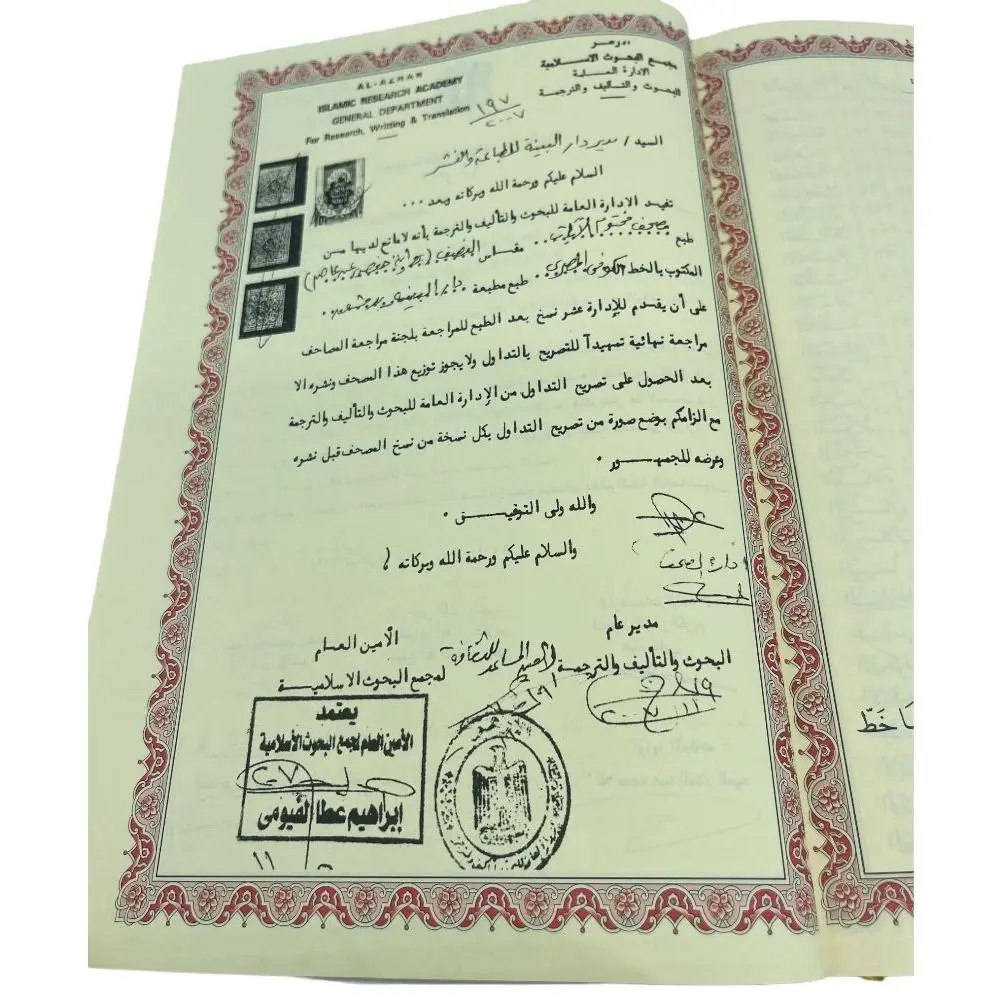 الأزهر
مجمع البحوث الاسلامية
الادارة العامة
للبحوث والتأليف والترجمة
AL-AZHAR
ISLAMIC RESEARCH ACADEMY
GENERAL DEPARTMENT
For Research, Writting & Translation
١٩٧
٢٠٠٧
السيد / مدير دار البينة للطباعة والنشر
السلام عليكم ورحمة الله وبركاته وبعد ...
تفيد الادارة العامة للبحوث والتأليف والترجمة بأنه لامانع لديها مــن
طبع مصحف مختوم الآيات .. مقاس النصف (برواية حفص عن عاصم)
المكتوب بالخط الكوفى المصرى . طبع مطبعة .
على أن يقدم للإدارة عشر نسخ بعد الطبع للمراجعة بلجنة مراجعة المصاحف
مراجعة نهائية تمهيدآ للتصريح بالتداول ولا يجوز توزيع هذا المصحف ونشره الا
بعد الحصول على تصريح التداول من الإدارة العامة للبحوث والتأليف والترجمة
مع الزامكم بوضع صورة من تصريح التداول بكل نسخة من نسخ المصحف قبل نشره
وعرضه للجمهــور .
والله ولى التوفيــق .
والسلام عليكم ورحمة الله وبركاته
مدير عام
البحوث والتأليف والترجمــة
الأمين العــام
لمجمع البحوث الاسلاميــة
يعتمد
الأمين العام لمجمع البحوث الأسلامية
إبراهيم عطا الفيومى
خَطّ